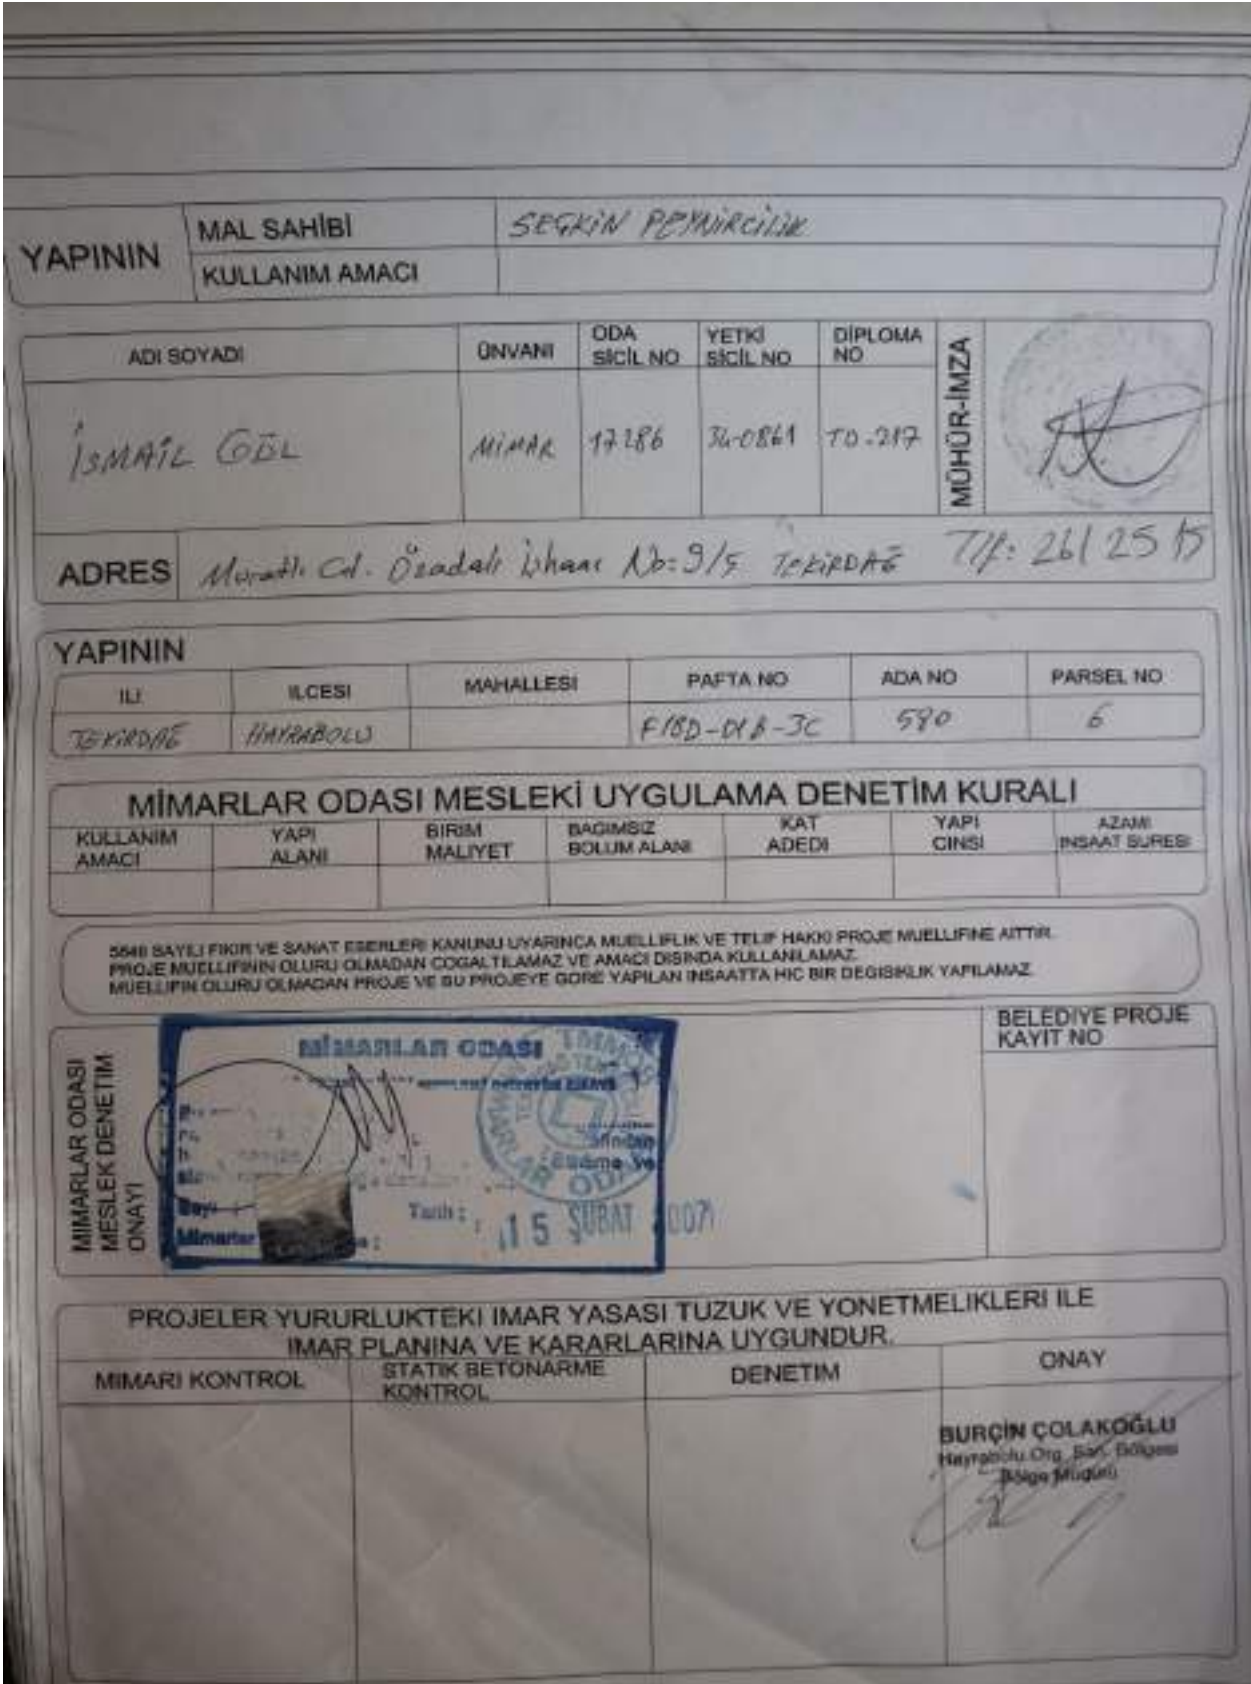 YAPININ
MAL SAHİBİ
SEÇKİN PEYNİRCİLİK
KULLANIM AMACI
ADI SOYADI
ÜNVANI
ODA SİCİL NO
YETKİ SİCİL NO
DİPLOMA NO
MÜHÜR-İMZA
İSMAİL GÖL
MİMAR
17286
34-0861
TD-217
ADRES
Muratlı Cd. Özadalı İşhanı No: 9/5 TEKİRDAĞ Tlf: 261 25 15
YAPININ
ILI
ILCESI
MAHALLESI
PAFTA NO
ADA NO
PARSEL NO
TEKİRDAĞ
HAYRABOLU
F18D-01B-3C
590
6
MİMARLAR ODASI MESLEKİ UYGULAMA DENETİM KURALI
KULLANIM AMACI
YAPI ALANI
BIRIM MALIYET
BAGIMSIZ BOLUM ALANI
KAT ADEDI
YAPI CINSI
AZAMI INSAAT SURESI
5846 SAYILI FIKIR VE SANAT ESERLERI KANUNU UYARINCA MUELLIFLIK VE TELIF HAKKI PROJE MUELLIFINE AITTIR.
PROJE MUELLIFININ OLURU OLMADAN COGALTILAMAZ VE AMACI DISINDA KULLANILAMAZ.
MUELLIFIN OLURU OLMADAN PROJE VE BU PROJEYE GORE YAPILAN INSAATTA HIC BIR DEGISIKLIK YAPILAMAZ.
MIMARLAR ODASI
MESLEK DENETIM
ONAYI
MİMARLAR ODASI
TMMOB
MİMARLAR ODASI
Tarih :
15 ŞUBAT 2007
Mimarlar
BELEDIYE PROJE
KAYIT NO
PROJELER YURURLUKTEKI IMAR YASASI TUZUK VE YONETMELIKLERI ILE
IMAR PLANINA VE KARARLARINA UYGUNDUR.
MIMARI KONTROL
STATIK BETONARME KONTROL
DENETIM
ONAY
BURÇİN ÇOLAKOĞLU
Hayrabolu Org. San. Bölgesi
Bölge Müdürü